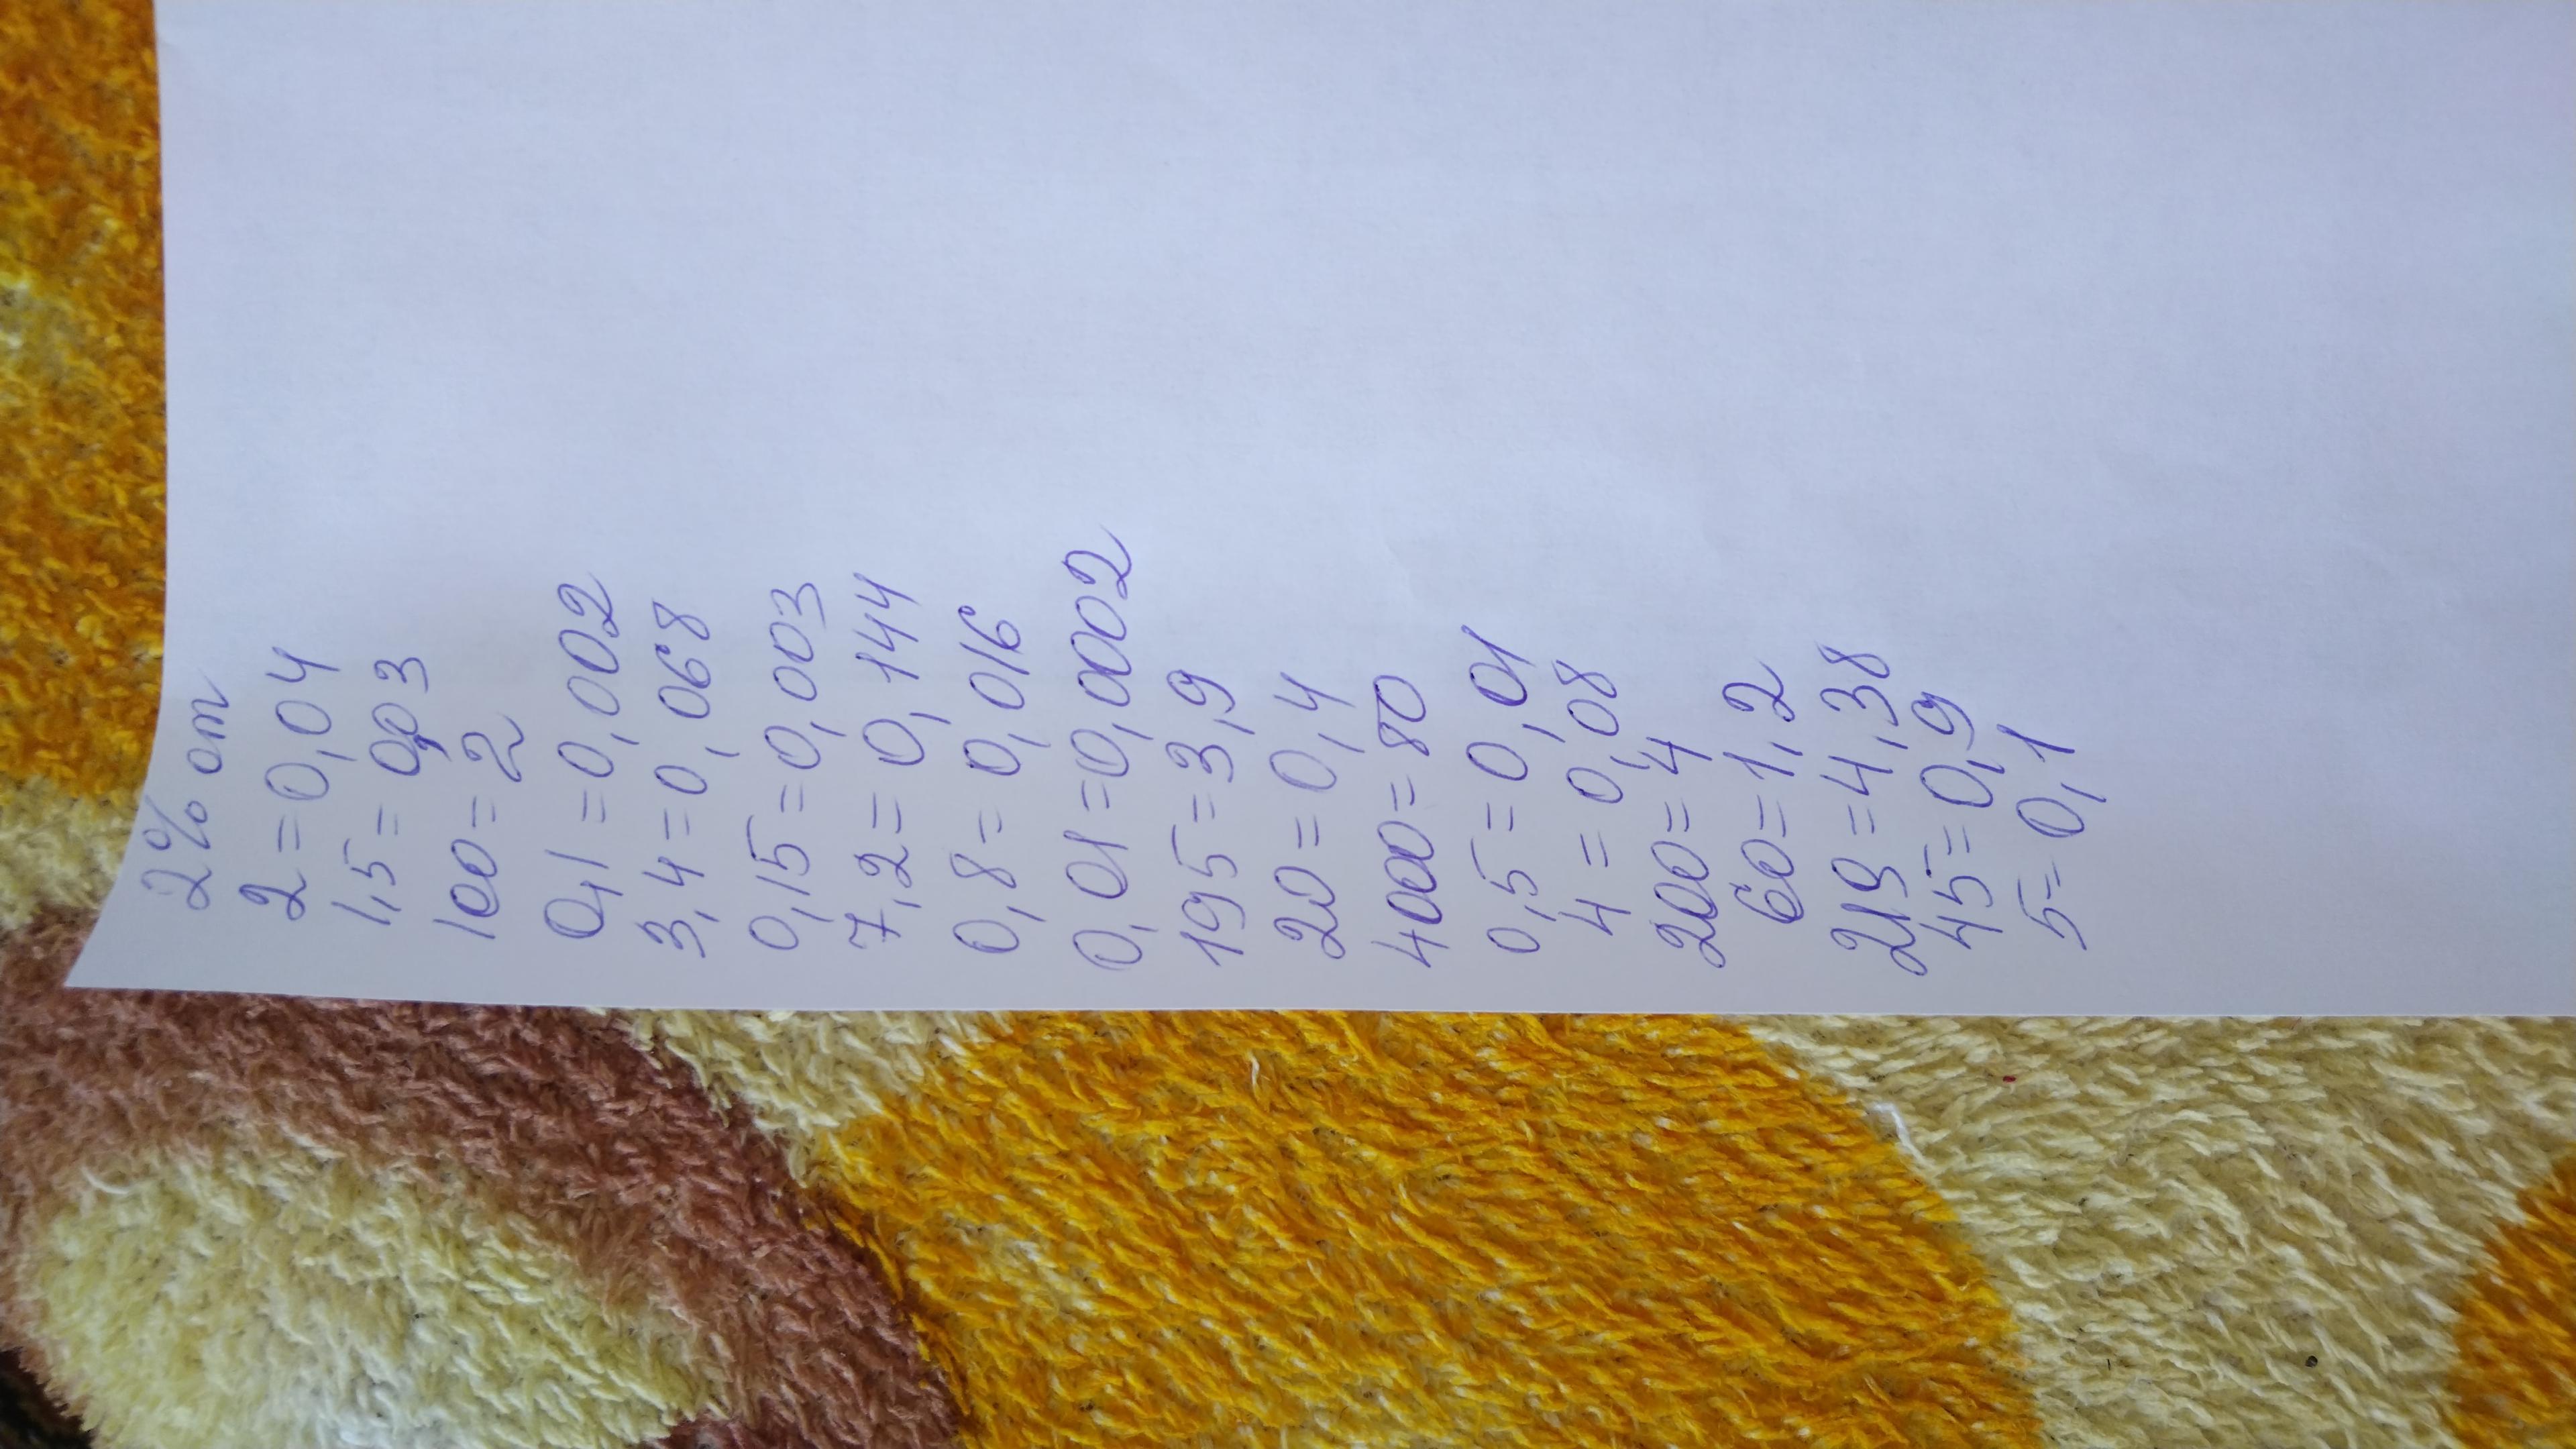 2% от
2=0,04
1,5=0,03
100=2
0,1=0,002
3,4=0,068
0,15=0,003
7,2=0,144
0,8=0,016
0,01=0,0002
195=3,9
20=0,4
4000=80
0,5=0,01
4=0,08
200=4
60=1,2
219=4,38
45=0,9
5=0,1